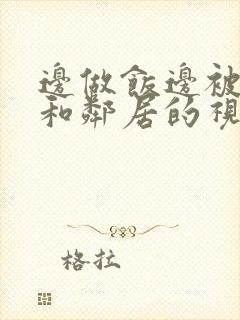 邊做飯邊被
和鄰居的視
格拉